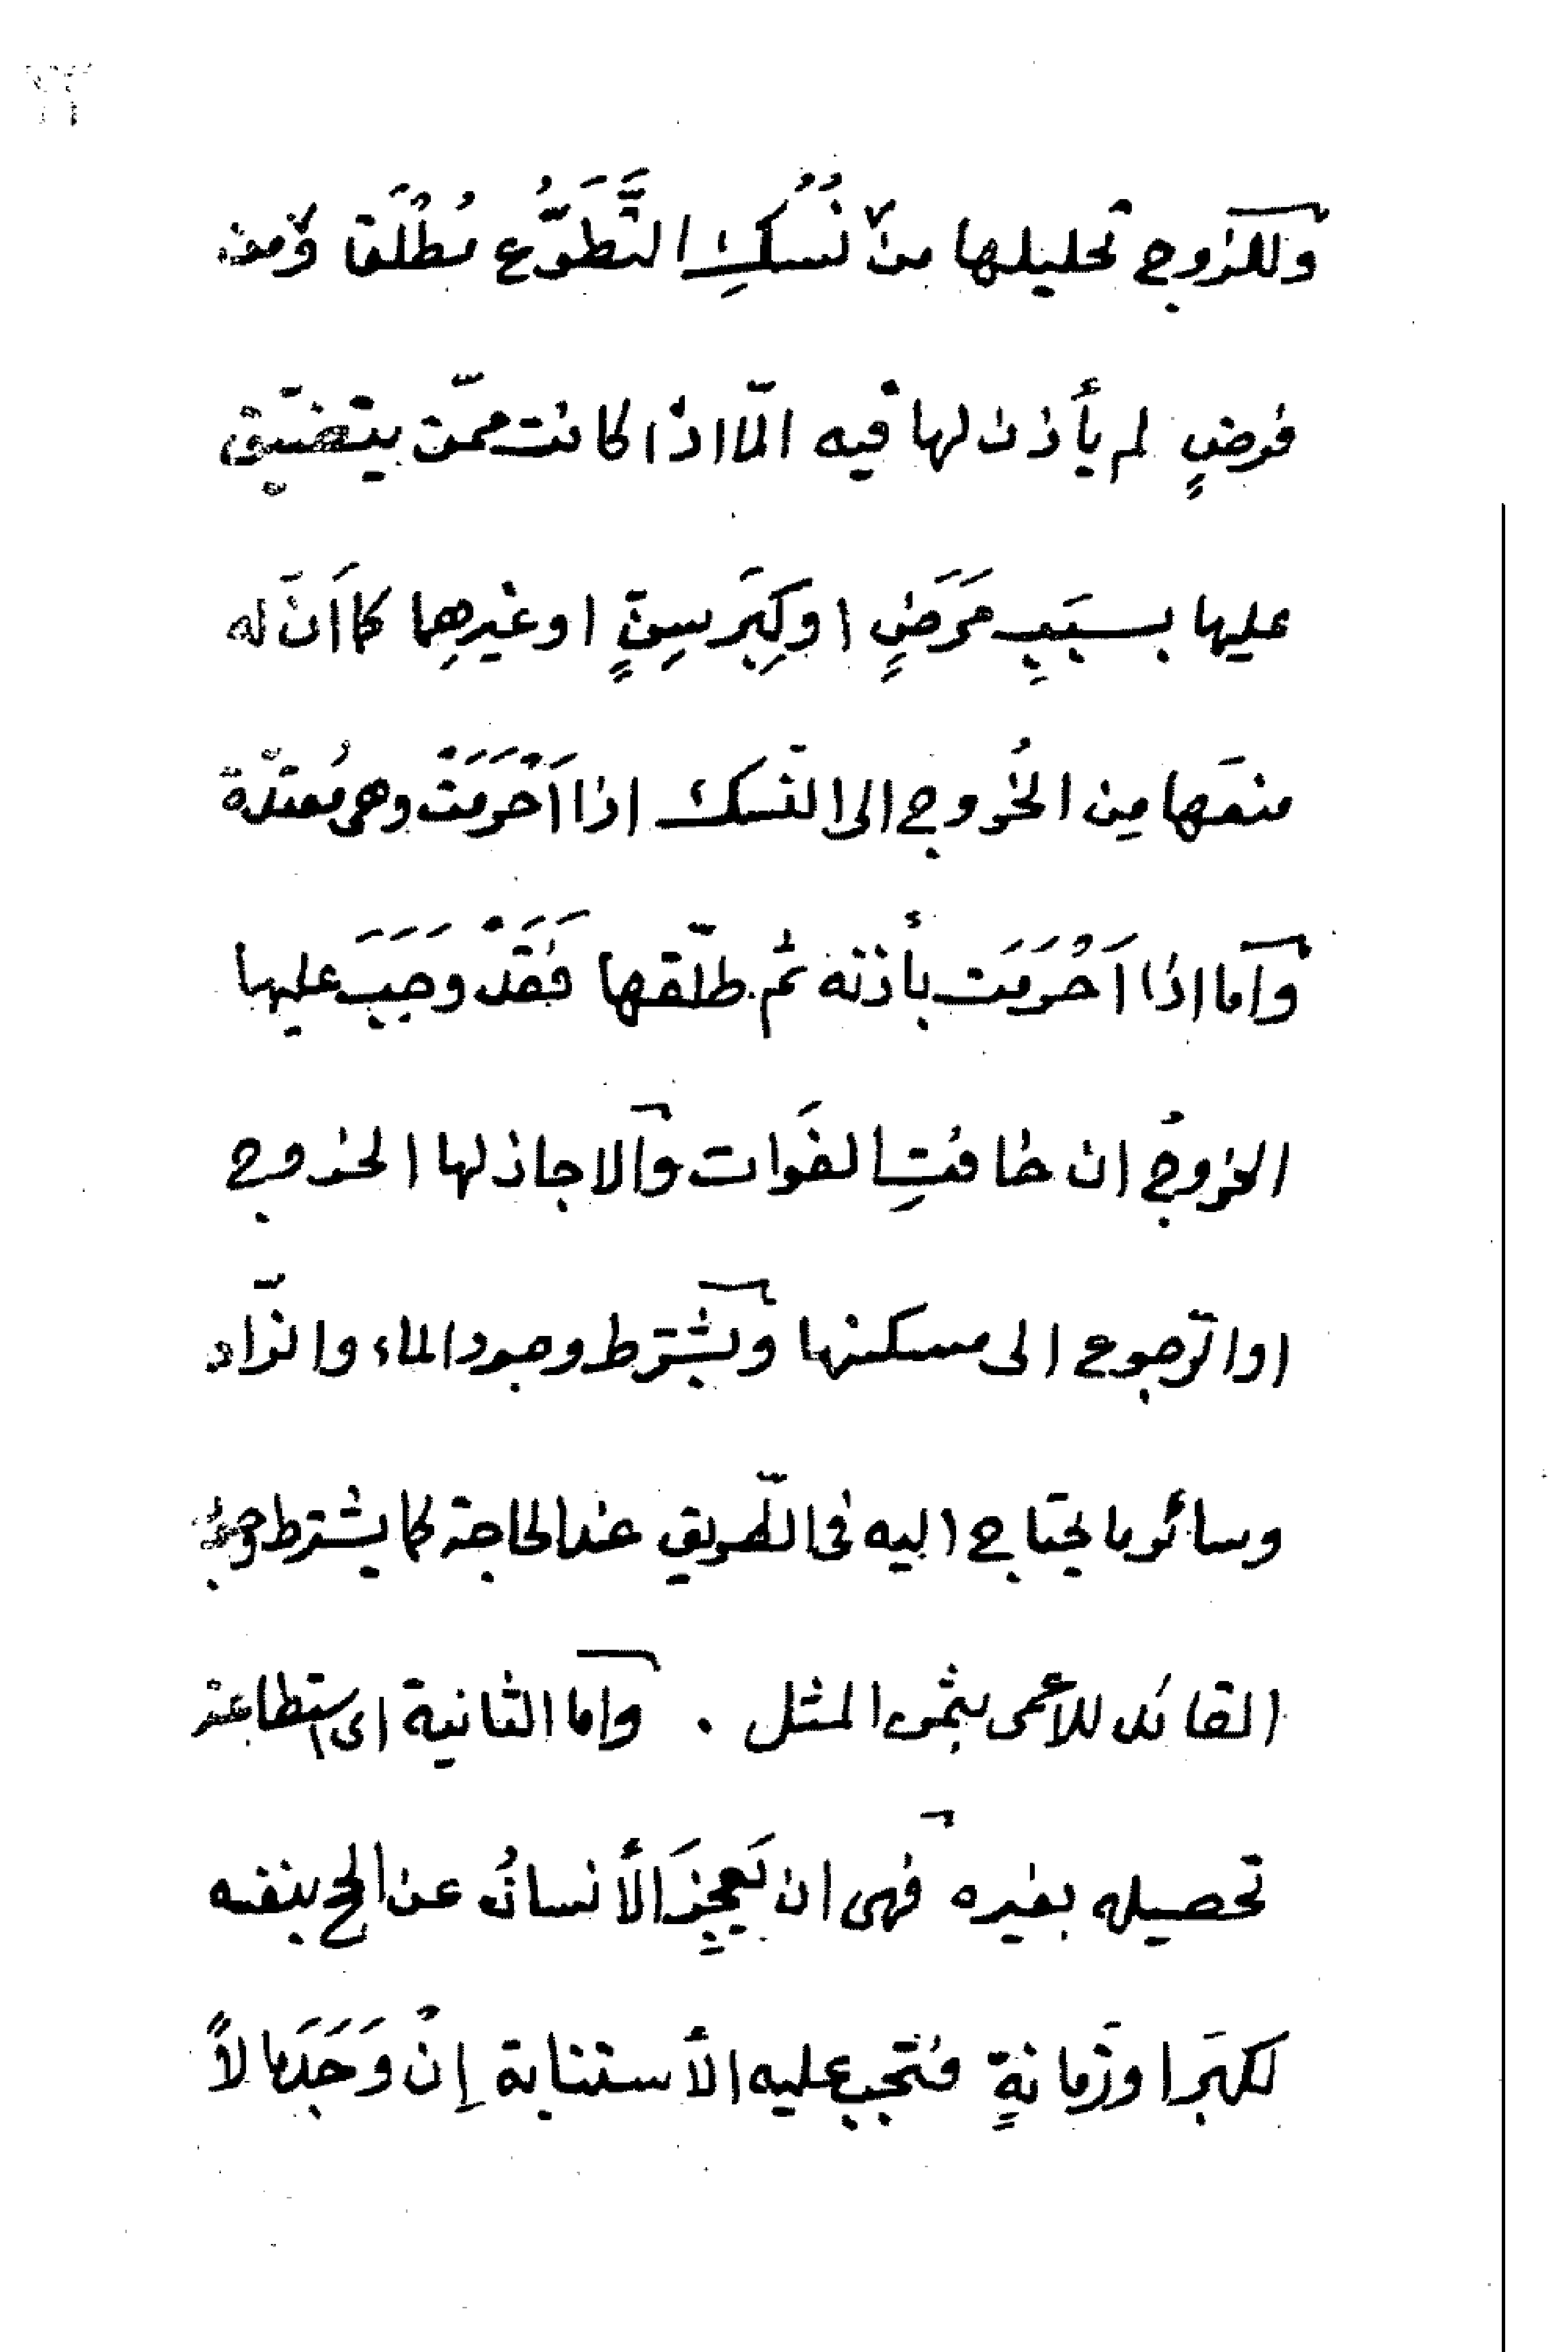 وللزوج تحليلها من نُسُكِ التَّطَوُّع مُطْلَقًا ومن
فرضٍ لم يأذن لها فيه الّا اذا كانت ممّن يتضيّق
عليها بسبَبِ مَرَضٍ او كِبَر سِنٍّ او غيرِهِما كما اَنّ له
منعَها مِن الخُروج الى النّسك اذا اَحْرَمَتْ وهى مُعتدّة
وامّا اذا اَحْرَمَت بأذنه ثم طلّقها فَقَدْ وَجَبَ عليها
الخروجُ ان خافتِ الفَوات والّا جاز لها الخروج
او الرّجوع الى مسكنها ويشترط وجود الماء والزّاد
وسائر ما يحتاج اليه فى الطّريق عند الحاجة كما يشترط وجود
القائد للأعمى بثمن المثل . واما الثانية اى استطاعة
تحصيله بغيره فهى ان يَعجِزَ الأنسانُ عن الحج بنفسه
لكِبَر او زَمانةٍ فتجب عليه الأستنابة إنْ وَجَدَ مالًا